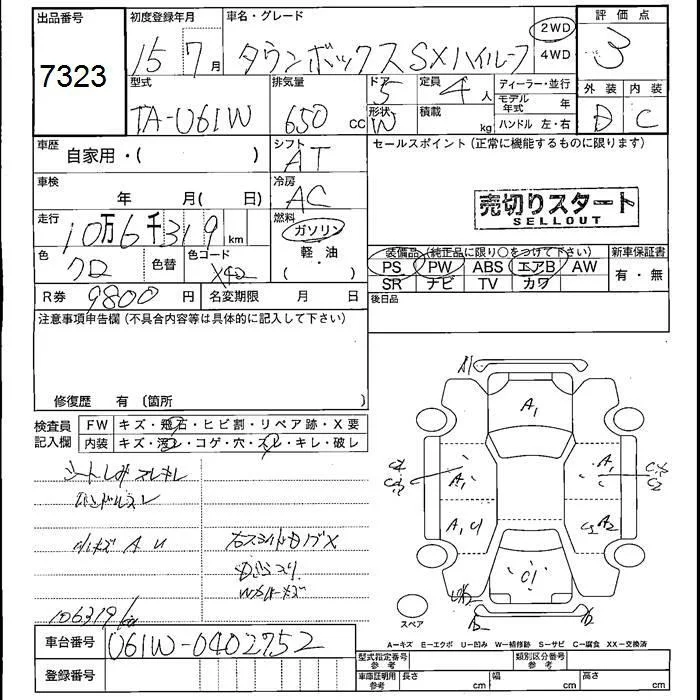 出品番号
7323
初度登録年月
15年7月
車名・グレード
タウンボックス SXハイルーフ
2WD
4WD
評価点
3
型式
TA-U61W
排気量
650 cc
ドア
5
形状
W
定員
4人
積載
kg
ディーラー・並行
モデル年式 年
ハンドル 左・右
外装 内装
D C
車歴
自家用・( )
シフト
AT
セールスポイント(正常に機能するものに限ります)
車検
年 月( 日)
冷房
AC
売切りスタート
SELLOUT
走行
10万6千319km
燃料
ガソリン
軽・油
( ・ )
色
クロ
色替
色コード
X42
装備品 (純正品に限り○をつけて下さい)
新車保証書
PS PW ABS エアB AW
有・無
SR ナビ TV カワ
R券 9800円
名変期限 月 日
後日品
注意事項申告欄(不具合内容等は具体的に記入して下さい)
修復歴 有(箇所 )
検査員
記入欄
FW キズ・飛石・ヒビ割・リペア跡・X要
内装 キズ・汚レ・コゲ・穴・スレ・キレ・破レ
ハンドルスレ
小キズ A U
106319km
A1
A1
A1
A1
C
A1 U
C2 A2
C1
スペア
A=キズ E=エクボ U=凹み W=補修跡 S=サビ C=腐食 XX=交換済
車台番号
U61W-0402752
登録番号
型式指定番号
参考
類別区分番号
参考
車庫証明用
参考
長さ cm
幅 cm
高さ cm